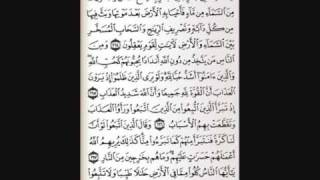 مِنَ السَّمَاءِ مِن مَّاءٍ فَأَحْيَا بِهِ الْأَرْضَ بَعْدَ مَوْتِهَا وَبَثَّ فِيهَا
مِن كُلِّ دَابَّةٍ وَتَصْرِيفِ الرِّيَاحِ وَالسَّحَابِ الْمُسَخَّرِ
بَيْنَ السَّمَاءِ وَالْأَرْضِ لَآيَاتٍ لِّقَوْمٍ يَعْقِلُونَ ١٦٤ وَمِنَ
النَّاسِ مَن يَتَّخِذُ مِن دُونِ اللَّهِ أَندَادًا يُحِبُّونَهُمْ كَحُبِّ اللَّهِ
وَالَّذِينَ آمَنُوا أَشَدُّ حُبًّا لِّلَّهِ وَلَوْ يَرَى الَّذِينَ ظَلَمُوا إِذْ يَرَوْنَ
الْعَذَابَ أَنَّ الْقُوَّةَ لِلَّهِ جَمِيعًا وَأَنَّ اللَّهَ شَدِيدُ الْعَذَابِ ١٦٥
إِذْ تَبَرَّأَ الَّذِينَ اتُّبِعُوا مِنَ الَّذِينَ اتَّبَعُوا وَرَأَوُا الْعَذَابَ
وَتَقَطَّعَتْ بِهِمُ الْأَسْبَابُ ١٦٦ وَقَالَ الَّذِينَ اتَّبَعُوا لَوْ أَنَّ
لَنَا كَرَّةً فَنَتَبَرَّأَ مِنْهُمْ كَمَا تَبَرَّءُوا مِنَّا كَذَٰلِكَ يُرِيهِمُ اللَّهُ
أَعْمَالَهُمْ حَسَرَاتٍ عَلَيْهِمْ وَمَا هُم بِخَارِجِينَ مِنَ النَّارِ
١٦٧ يَا أَيُّهَا النَّاسُ كُلُوا مِمَّا فِي الْأَرْضِ حَلَالًا طَيِّبًا وَلَا تَتَّبِعُوا